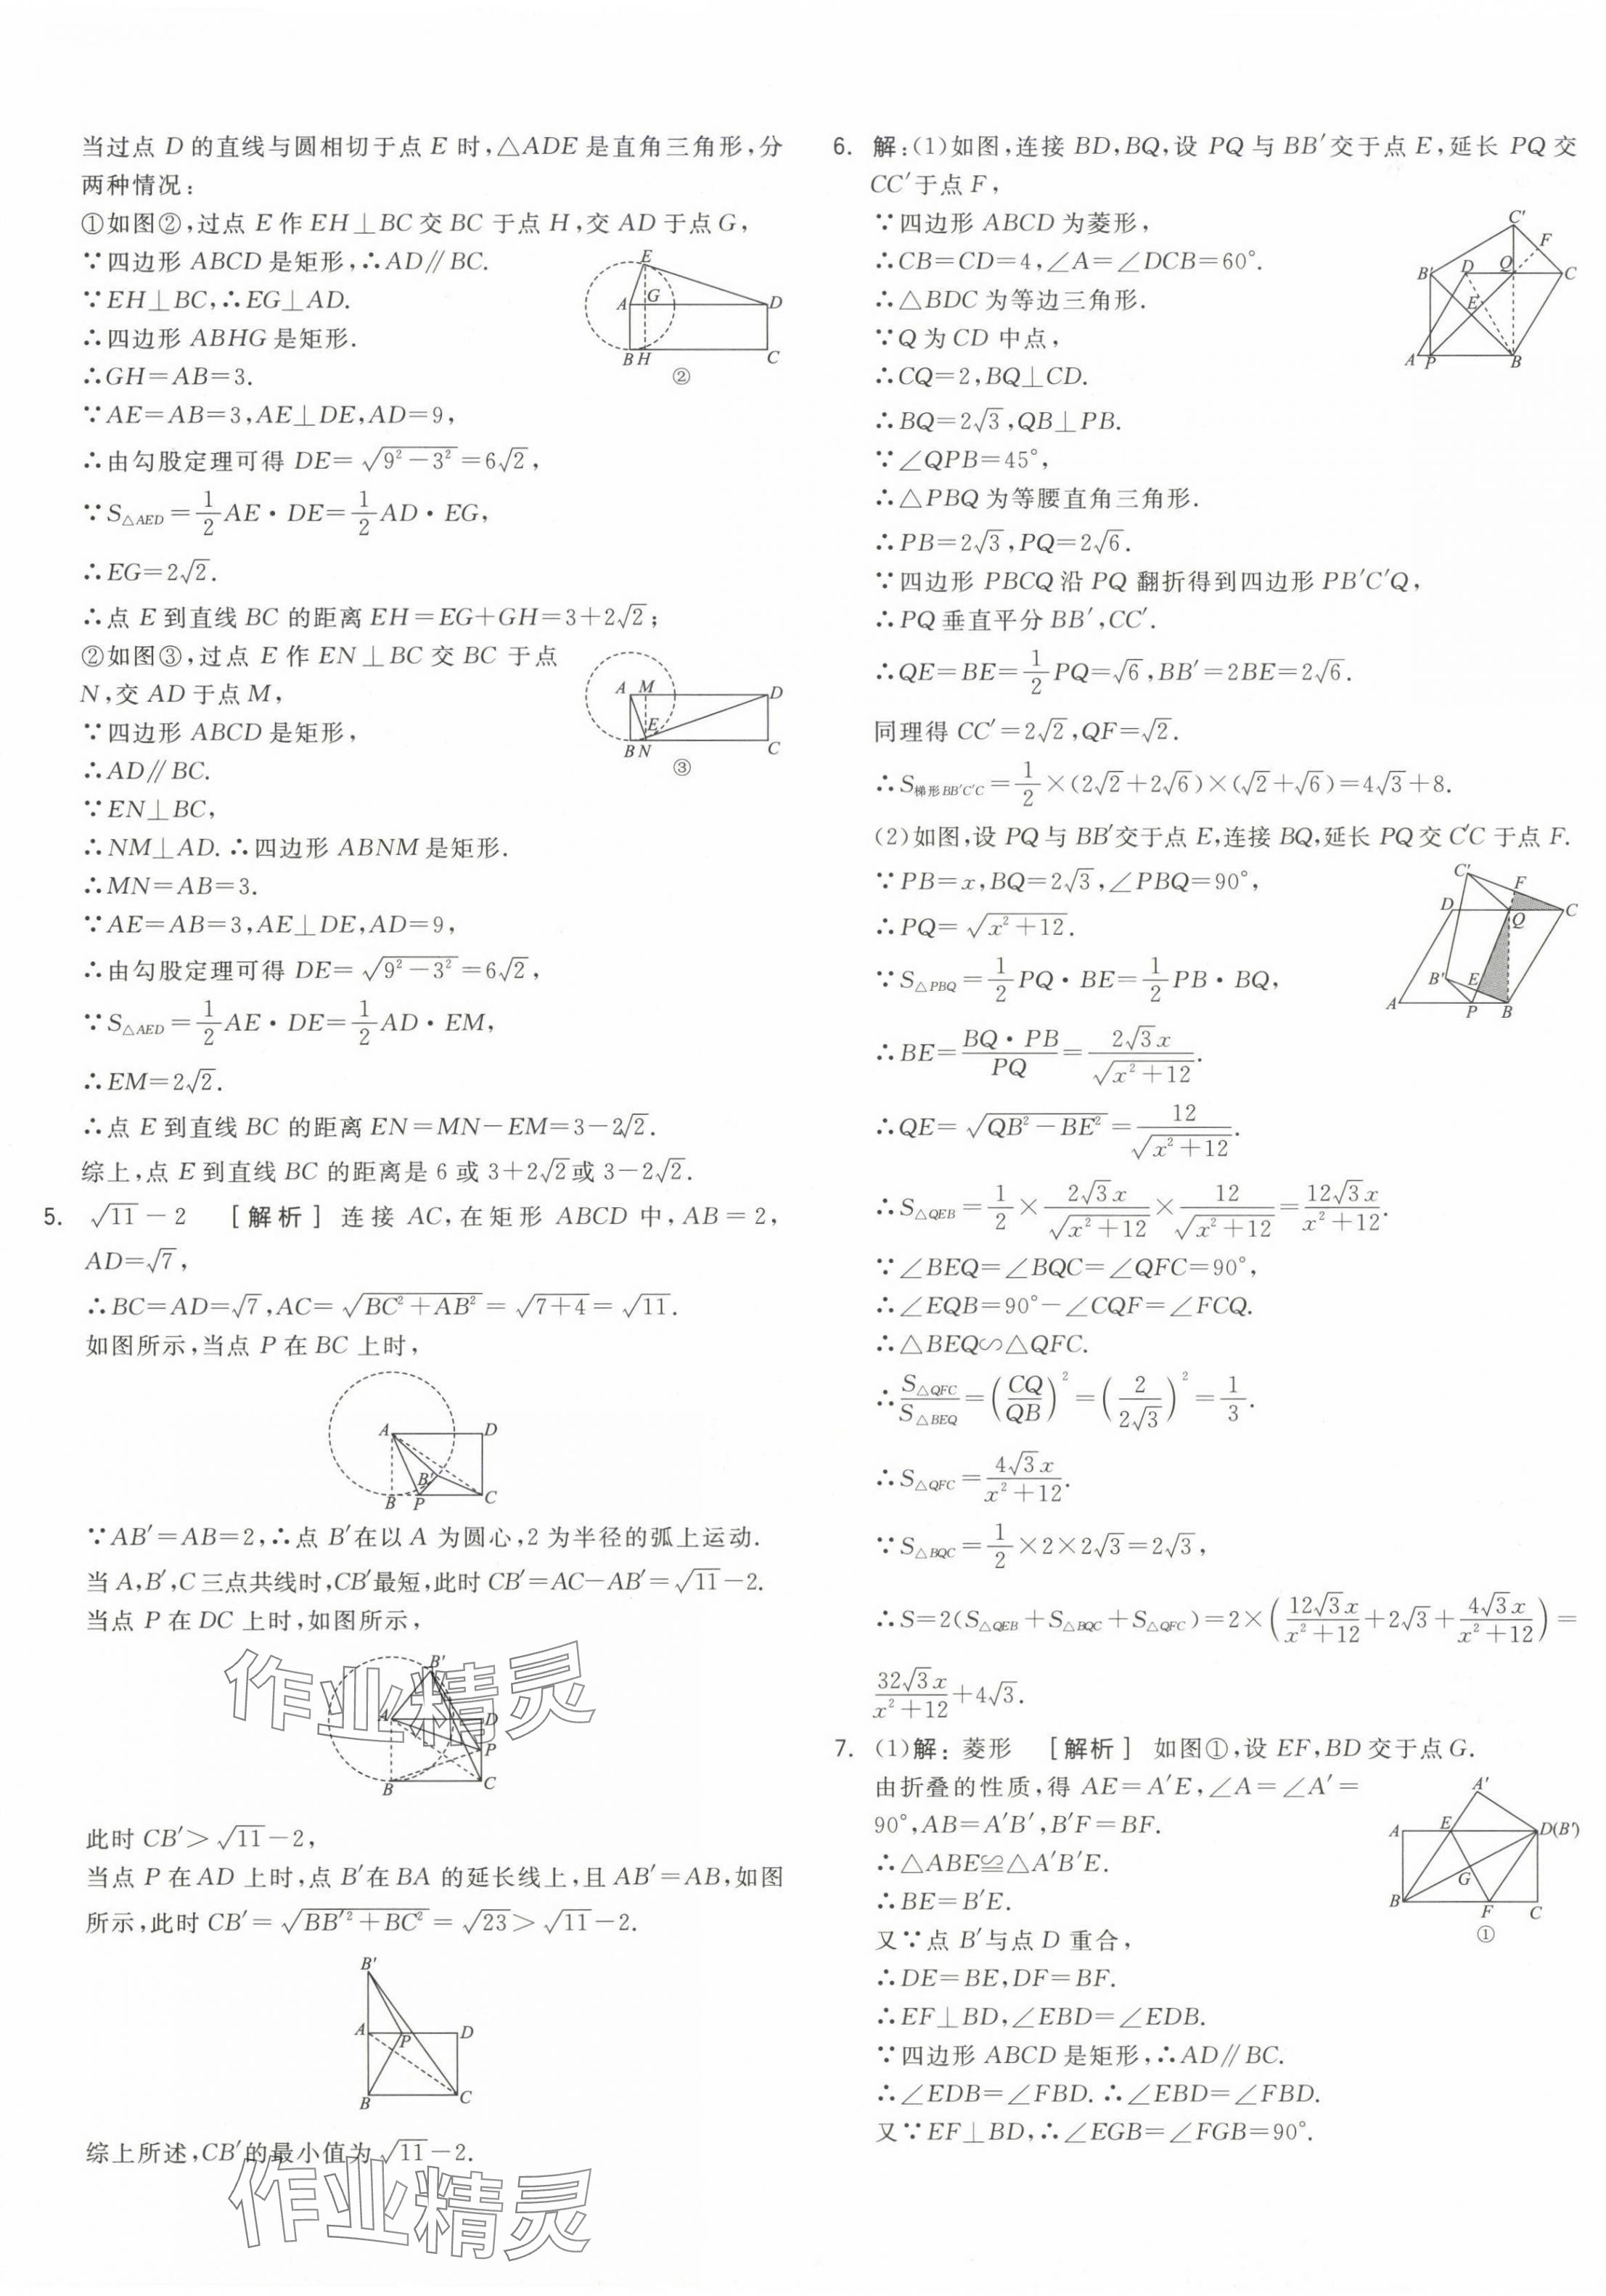 当过点 D 的直线与圆相切于点 E 时,△ADE 是直角三角形,分
两种情况:
①如图②,过点 E 作 EH⊥BC 交 BC 于点 H,交 AD 于点 G,
∵四边形 ABCD 是矩形,∴AD∥BC.
∵EH⊥BC,∴EG⊥AD.
∴四边形 ABHG 是矩形.
∴GH=AB=3.
E
A
G
D
B
H
C
②
∵AE=AB=3,AE⊥DE,AD=9,
∴由勾股定理可得 DE=√(9²-3²)=6√2,
∵S△AED=1/2 AE·DE=1/2 AD·EG,
∴EG=2√2.
∴点 E 到直线 BC 的距离 EH=EG+GH=3+2√2;
②如图③,过点 E 作 EN⊥BC 交 BC 于点
N,交 AD 于点 M,
∵四边形 ABCD 是矩形,
∴AD∥BC.
∵EN⊥BC,
A
M
D
E
B
N
C
③
∴NM⊥AD.∴四边形 ABNM 是矩形.
∴MN=AB=3.
∵AE=AB=3,AE⊥DE,AD=9,
∴由勾股定理可得 DE=√(9²-3²)=6√2,
∵S△AED=1/2 AE·DE=1/2 AD·EM,
∴EM=2√2.
∴点 E 到直线 BC 的距离 EN=MN-EM=3-2√2.
综上,点 E 到直线 BC 的距离是 6 或 3+2√2或 3-2√2.
5. √11-2 [解析] 连接 AC,在矩形 ABCD 中,AB=2,
AD=√7,
∴BC=AD=√7,AC=√(BC²+AB²)=√(7+4)=√11.
如图所示,当点 P 在 BC 上时,
A
D
B′
B
P
C
∵AB′=AB=2,∴点 B′在以 A 为圆心,2 为半径的弧上运动.
当 A,B′,C 三点共线时,CB′最短,此时 CB′=AC-AB′=√11-2.
当点 P 在 DC 上时,如图所示,
B′
A
D
P
B
C
作业精灵
此时 CB′>√11-2,
当点 P 在 AD 上时,点 B′在 BA 的延长线上,且 AB′=AB,如图
所示,此时 CB′=√(BB′²+BC²)=√23>√11-2.
B′
A
P
D
B
C
综上所述,CB′的最小值为√11-2.
作业精灵
6. 解:(1)如图,连接 BD,BQ,设 PQ 与 BB′交于点 E,延长 PQ 交
CC′于点 F,
∵四边形 ABCD 为菱形,
∴CB=CD=4,∠A=∠DCB=60°.
∴△BDC 为等边三角形.
∵Q 为 CD 中点,
∴CQ=2,BQ⊥CD.
C′
F
B′
D
Q
C
E
A
P
B
∴BQ=2√3,QB⊥PB.
∵∠QPB=45°,
∴△PBQ 为等腰直角三角形.
∴PB=2√3,PQ=2√6.
∵四边形 PBCQ 沿 PQ 翻折得到四边形 PB′C′Q,
∴PQ 垂直平分 BB′,CC′.
∴QE=BE=1/2 PQ=√6,BB′=2BE=2√6.
同理得 CC′=2√2,QF=√2.
∴S梯形BB′C′C=1/2×(2√2+2√6)×(√2+√6)=4√3+8.
(2)如图,设 PQ 与 BB′交于点 E,连接 BQ,延长 PQ 交 C′C 于点 F.
∵PB=x,BQ=2√3,∠PBQ=90°,
∴PQ=√(x²+12).
∵S△PBQ=1/2 PQ·BE=1/2 PB·BQ,
C′
F
D
Q
C
B′
E
A
P
B
∴BE=(BQ·PB)/PQ=2√3x/√(x²+12).
∴QE=√(QB²-BE²)=12/√(x²+12).
∴S△QEB=1/2×2√3x/√(x²+12)×12/√(x²+12)=12√3x/(x²+12).
∵∠BEQ=∠BQC=∠QFC=90°,
∴∠EQB=90°-∠CQF=∠FCQ.
∴△BEQ∽△QFC.
∴S△QFC/S△BEQ=(CQ/QB)²=(2/2√3)²=1/3.
∴S△QFC=4√3x/(x²+12).
∵S△BQC=1/2×2×2√3=2√3,
∴S=2(S△QEB+S△BQC+S△QFC)=2×(12√3x/(x²+12)+2√3+4√3x/(x²+12))=
32√3x/(x²+12)+4√3.
7. (1)解:菱形 [解析] 如图①,设 EF,BD 交于点 G.
由折叠的性质,得 AE=A′E,∠A=∠A′=
90°,AB=A′B′,B′F=BF.
∴△ABE≌△A′B′E.
∴BE=B′E.
又∵点 B′与点 D 重合,
A′
A
E
D(B′)
G
B
F
C
①
∴DE=BE,DF=BF.
∴EF⊥BD,∠EBD=∠EDB.
∵四边形 ABCD 是矩形,∴AD∥BC.
∴∠EDB=∠FBD.∴∠EBD=∠FBD.
又∵EF⊥BD,∴∠EGB=∠FGB=90°.